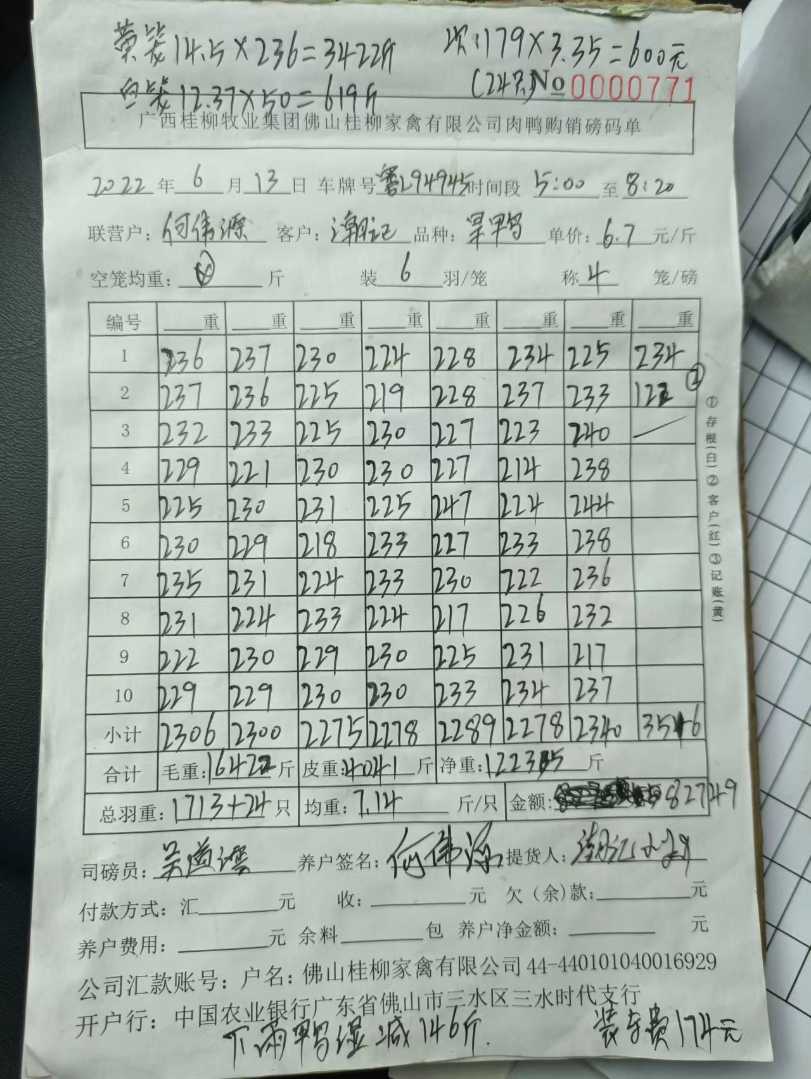 黄笼14.5×236=3422斤 次:179×3.35=600元
白笼12.37×50=619斤 (24只) No 0000771
广西桂柳牧业集团佛山桂柳家禽有限公司肉鸭购销磅码单
2022年6月13日 车牌号粤L94945时间段5:00至8:20
联营户:何伟源 客户:潮记 品种: 单价:6.7元/斤
空笼均重: 斤 装6羽/笼 称4笼/磅
编号 重 重 重 重 重 重 重 重
1 236 237 230 224 228 234 225 234
2 237 236 225 219 228 237 233 122 ②
3 232 233 225 230 227 223 240 —
4 229 221 230 230 227 214 238
5 225 230 231 225 247 224 244
6 230 229 218 233 227 233 238
7 235 231 224 233 230 222 236
8 231 224 233 224 217 226 232
9 222 230 229 230 225 231 217
10 229 229 230 230 233 234 237
小计 2306 2300 2275 2278 2289 2278 2340 356
合计 毛重:16422斤 皮重:4041斤 净重:12235斤
总羽重:1713+24只 均重:7.14斤/只 金额:82749
①存根(白)②客户(红)③记账(黄)
司磅员: 养户签名:何伟源 提货人:
付款方式:汇 元 收: 元 欠(余)款: 元
养户费用: 元 余料 包 养户净金额: 元
公司汇款账号:户名:佛山桂柳家禽有限公司44-440101040016929
开户行:中国农业银行广东省佛山市三水区三水时代支行
下雨鸭湿减146斤. 装车费174元